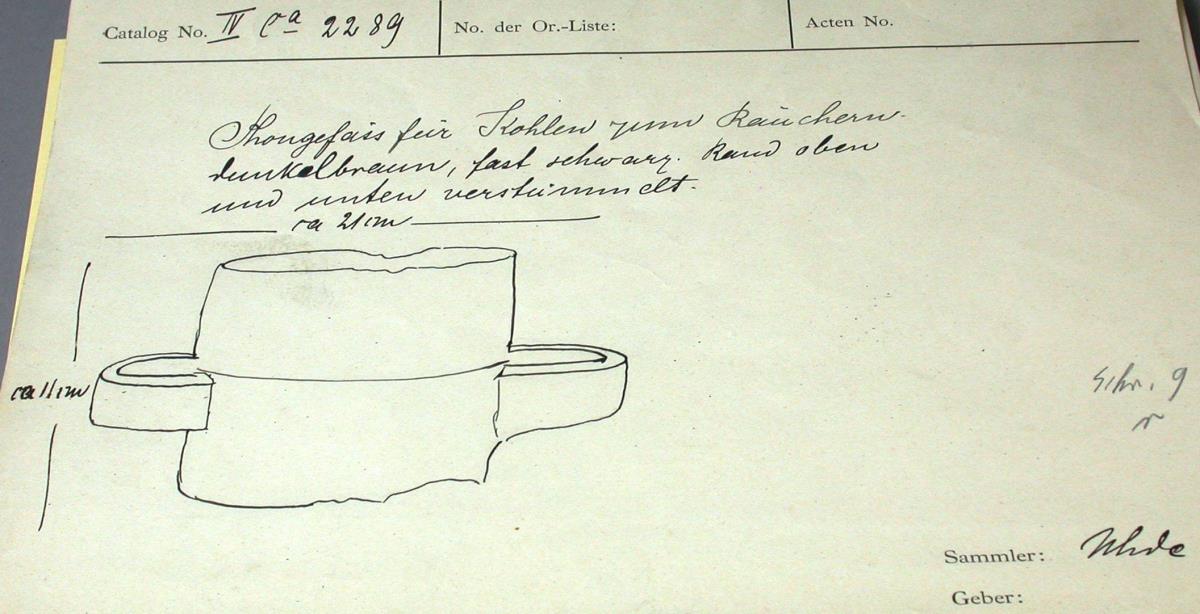 Catalog No. IV Ca 2289 No. der Or.-Liste: Acten No.
Thongefäss für Kohlen zum Räuchern.
dunkelbraun, fast schwarz. Rand oben
und unten verstümmelt.
ca 21 cm
ca 11 cm
Schr. 9
r
Sammler: Uhde
Geber: